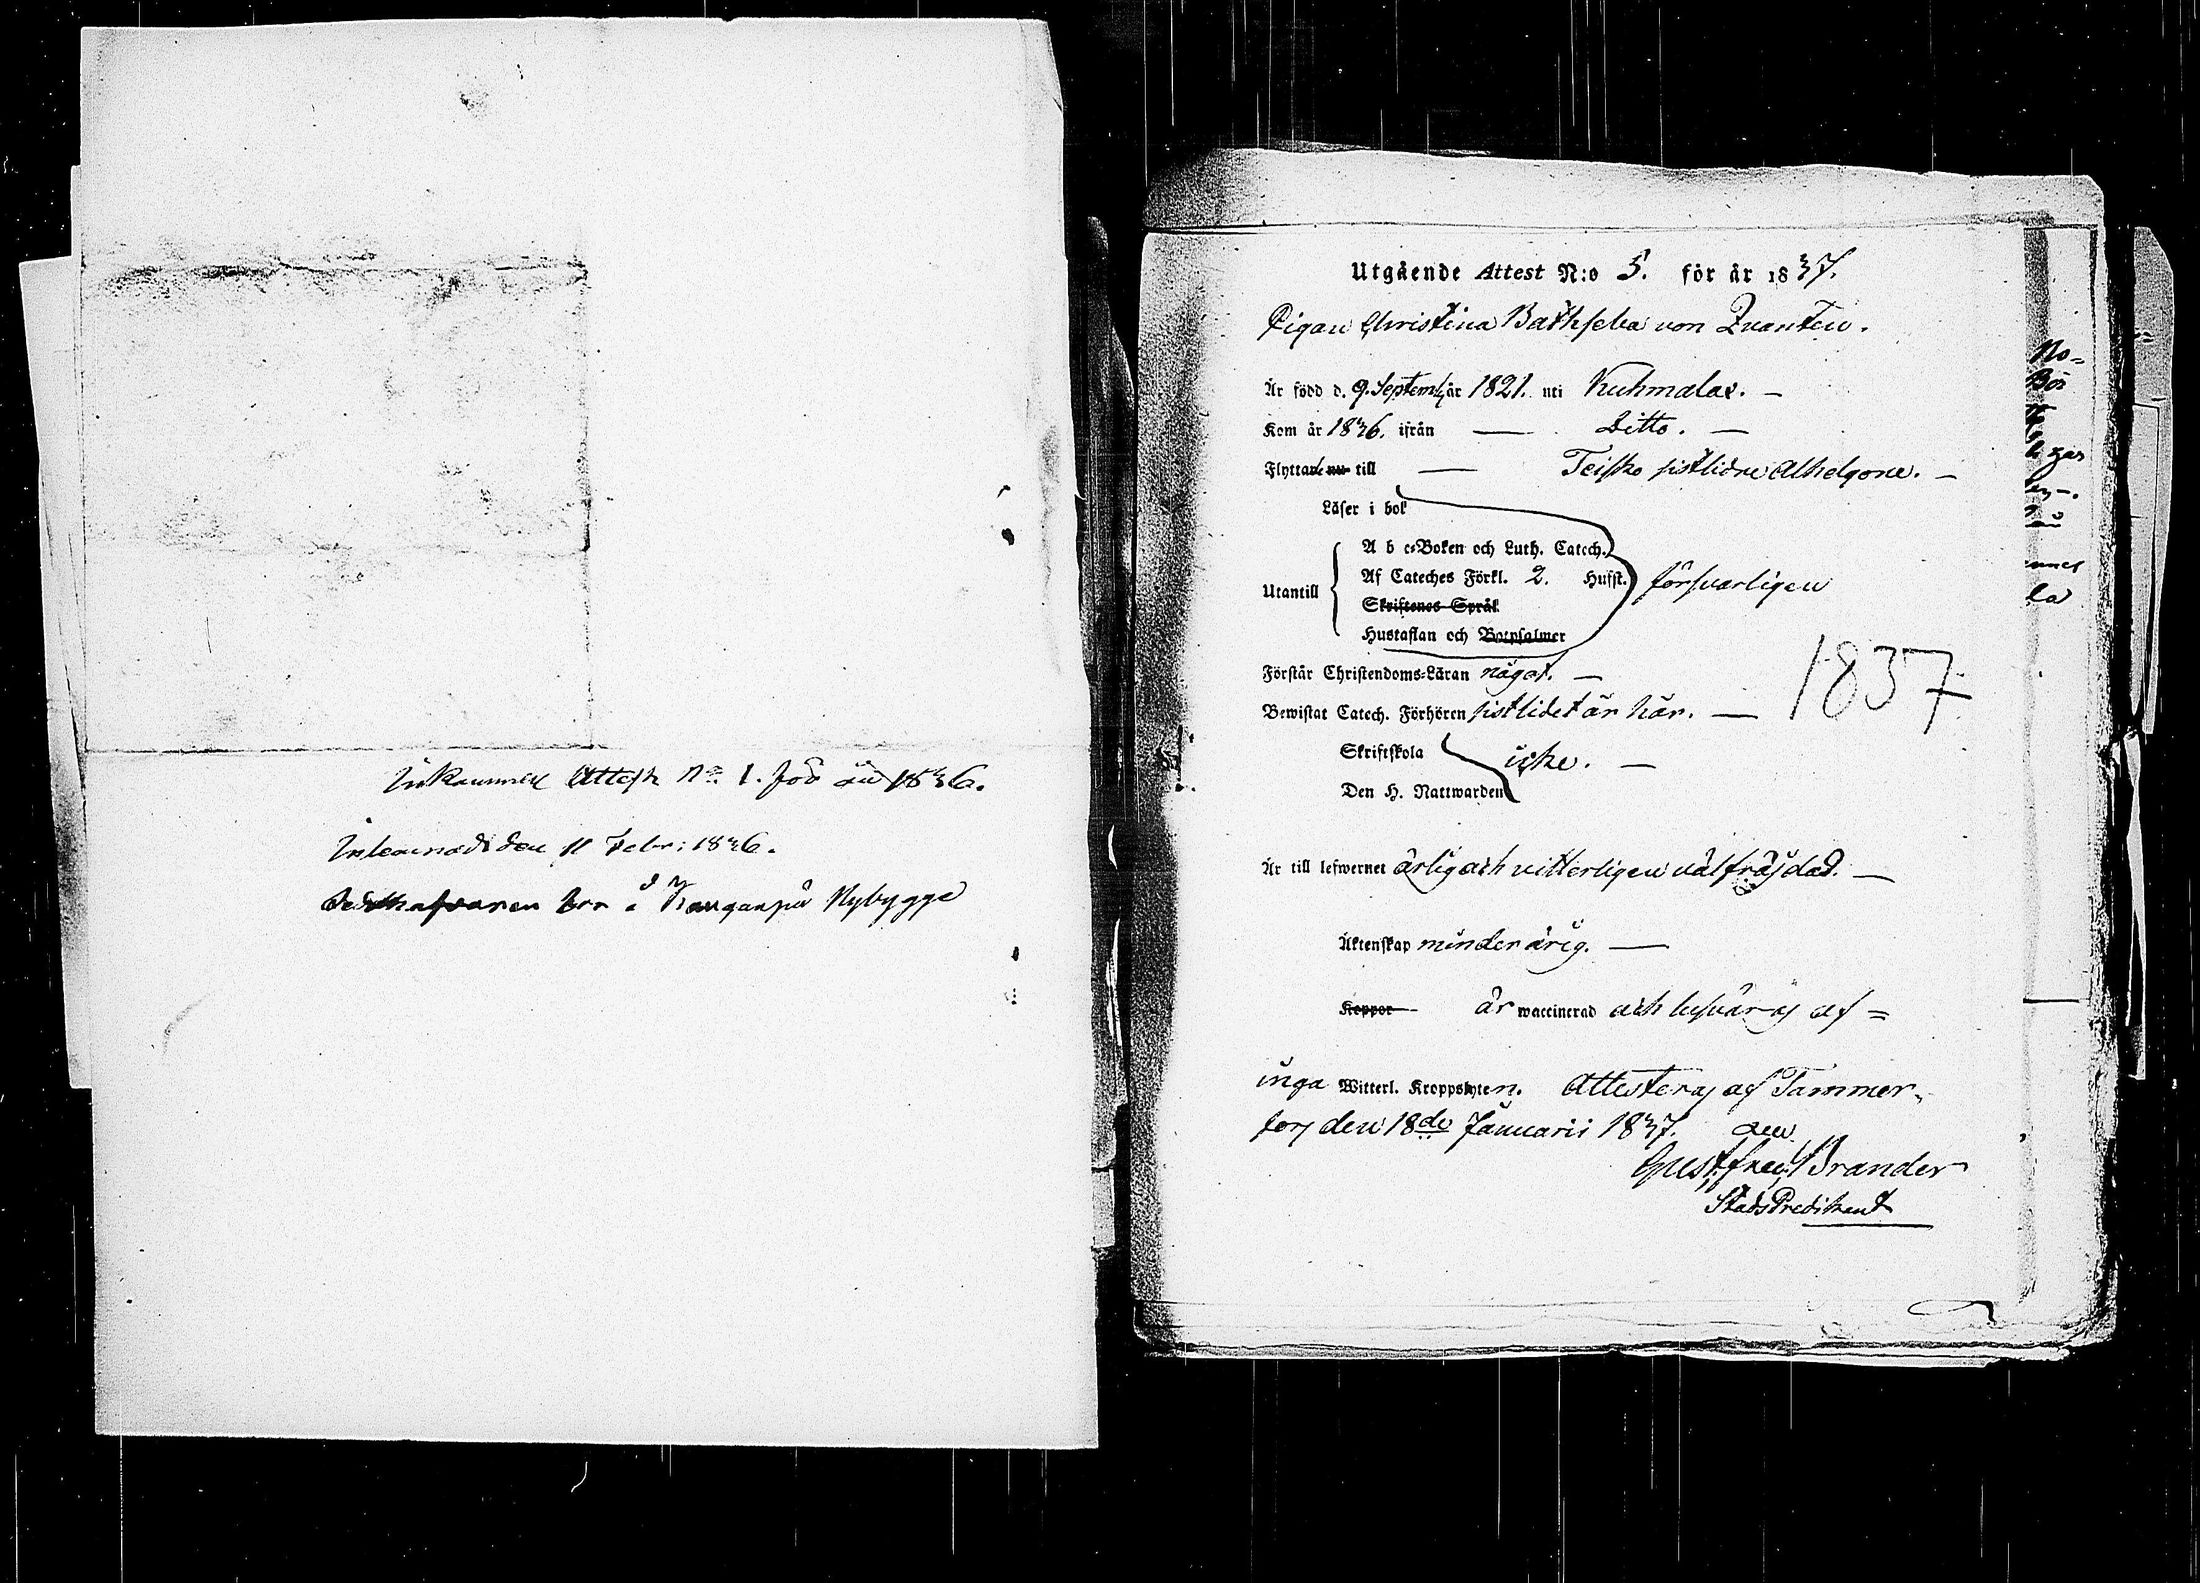 Inkommen Attest No 1. för år 1836.
Inlemnad den 11 Febr: 1836.
bor å Kauganpää Nybygge
Utgående Attest N:o 5. för år 1837.
Pigan Christina Bathseba von Qvanten.
Är född d. 9. Septemb. år 1821. uti Kuhmalax. —
Kom år 1836. ifrån — Ditto. —
Flyttade nu till — Teisko sistlidne Alhelgone. —
Läser i bok
Utantill
A b c-Boken och Luth. Catech.
Af Cateches Förkl. 2. Hufst. försvarligen
Skriftenes Språk
Hustaflan och Botpsalmer
Förstår Christendoms-Läran något. —
1837
Bewistat Catech. Förhören sistlidet år här. —
Skriftskola icke. —
Den H. Nattwarden
Är till lefwernet ärlig och vitterligen välfräjdad. —
Äktenskap minderårig. —
Koppor är waccinerad och besväras af =
inga Witterl. Kroppslyten. Attesteras af Tammer-
fors den 18de Januarii 1837.
Gust. Fred. Brander
StadsPredikant
No-
Bor
gas
la